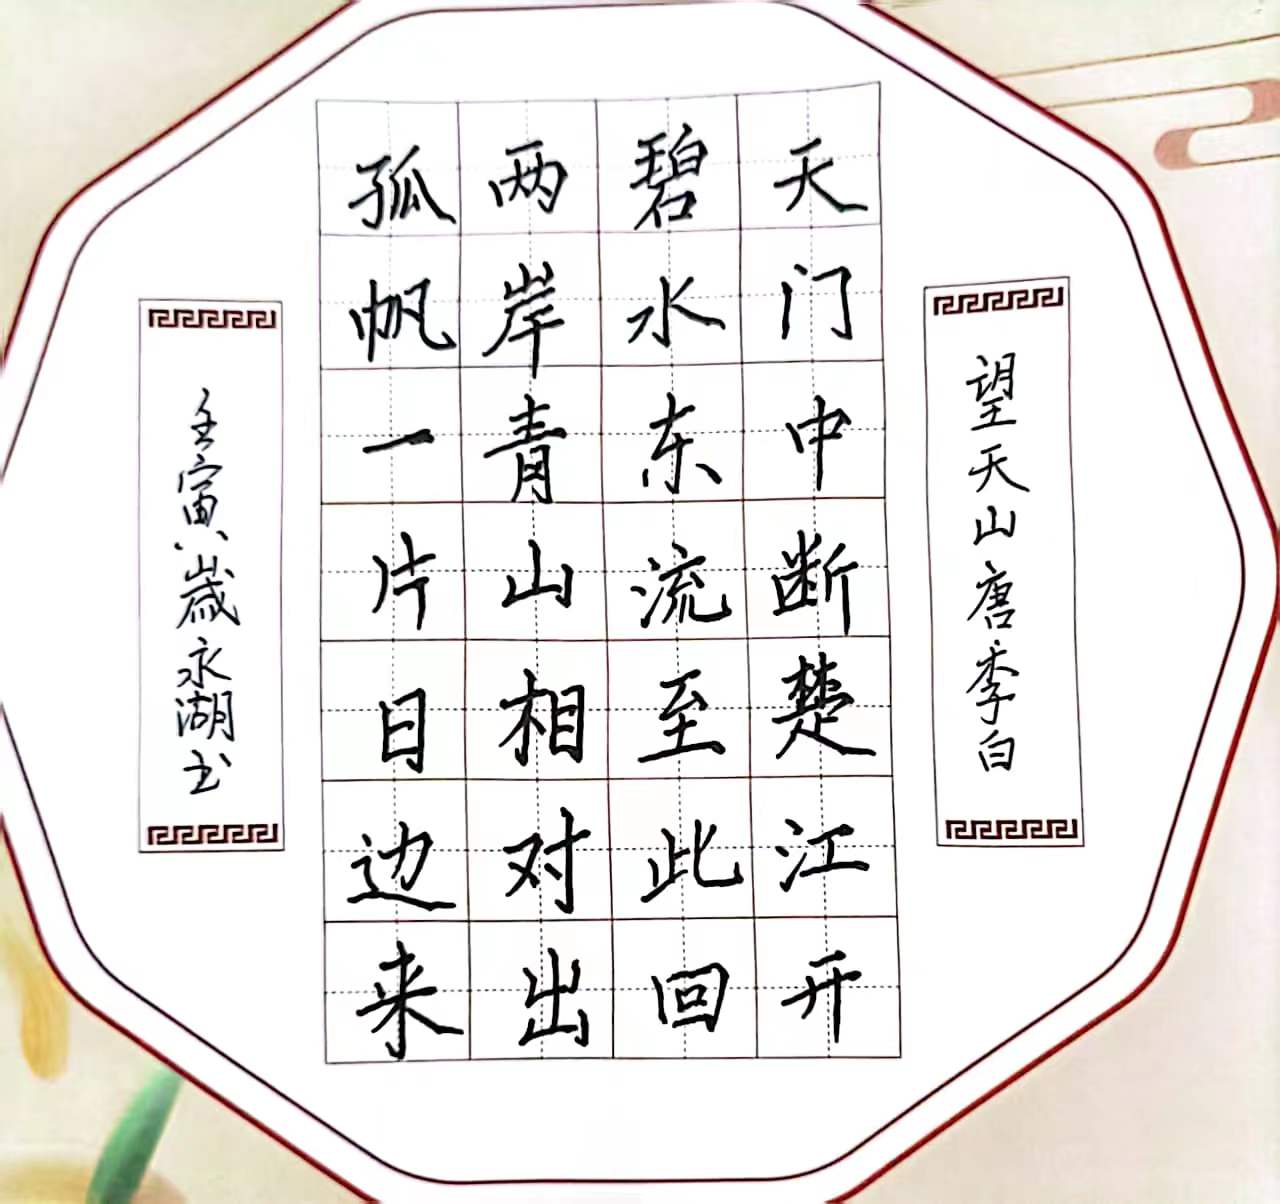 望天山唐李白
天门中断楚江开
碧水东流至此回
两岸青山相对出
孤帆一片日边来
壬寅岁永湖书